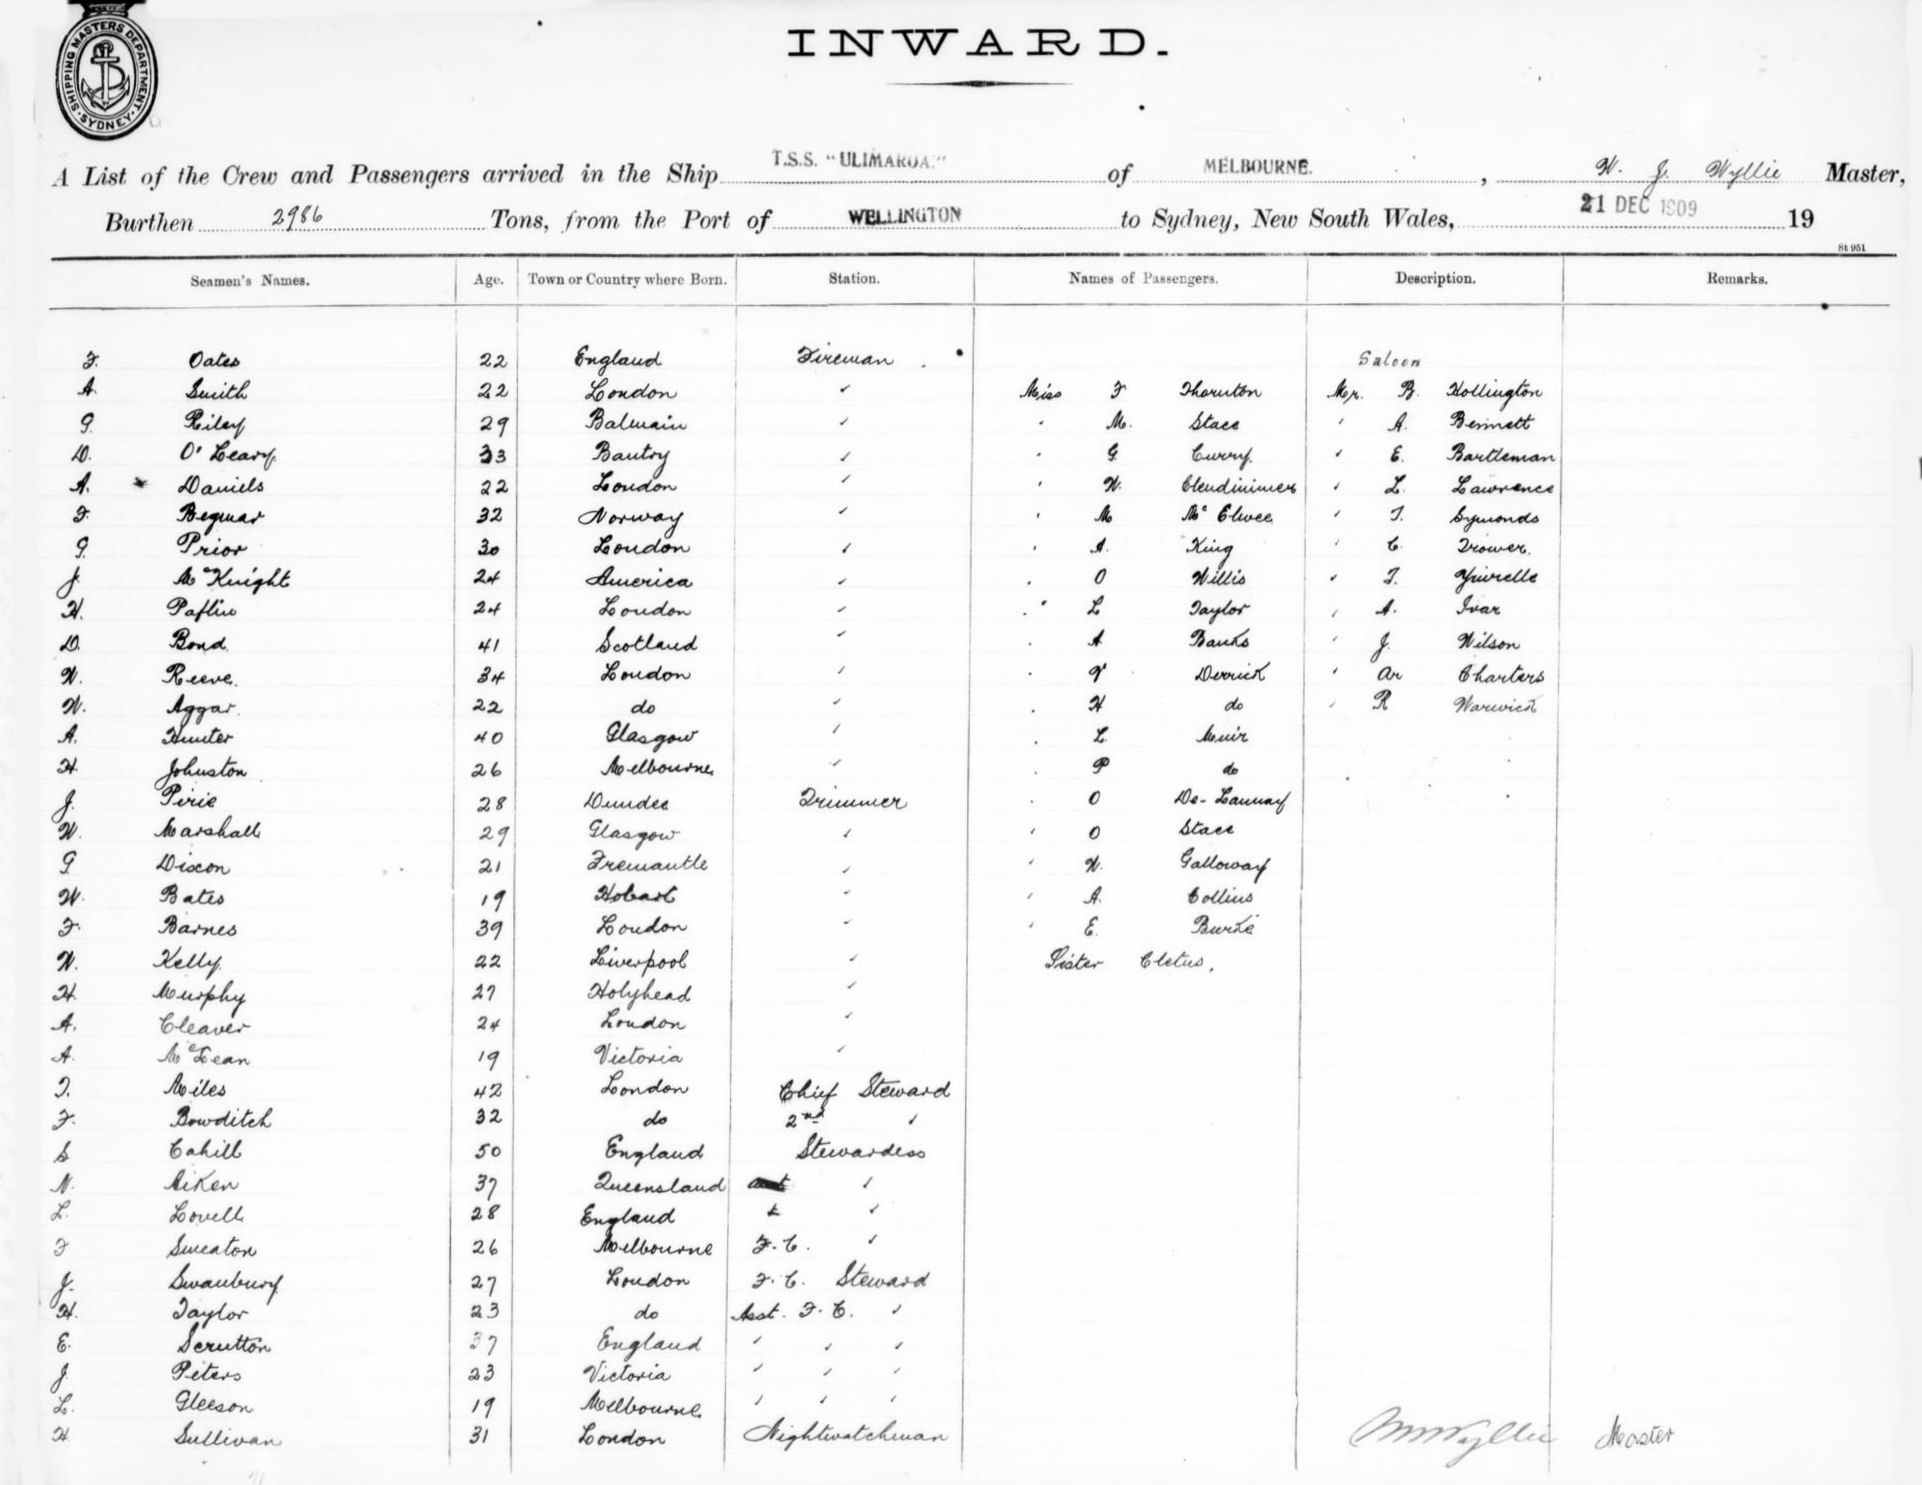 SHIPPING MASTERS DEPARTMENT. SYDNEY.
INWARD.
A List of the Crew and Passengers arrived in the Ship T.S.S. "ULIMAROA." of MELBOURNE. , W. J. Wyllie Master,
Burthen 2986 Tons, from the Port of WELLINGTON to Sydney, New South Wales, 21 DEC 1909 19
St 951
Seamen's Names. Age. Town or Country where Born. Station. Names of Passengers. Description. Remarks.
F. Oates 22 England Fireman Saloon
A. Smith 22 London " Miss F Thornton Mr. B. Hollington
G. Riley 29 Balmain " " M. Stace " A. Bennett
D. O'Leary 33 Bantry " " G Curry " E. Bartleman
A. Daniels 22 London " " W. Clendinimer " L. Lawrence
F. Begmar 32 Norway " " M McElwee " T. Symonds
G. Prior 30 London " " A. King " C. Trower.
J. McKnight 24 America " " O Willis " T.
H. Paflin 24 London " " L Taylor " A. Ivar
D. Bond. 41 Scotland " " A Banks " J. Wilson
W. Reeve. 34 London " " V Derrick " Ar Charters
W. Aggar. 22 do " " H do " R Warwick
A. Hunter 40 Glasgow " " L. Muir
H. Johnston 26 Melbourne " " P do
J. Pirie 28 Dundee Trimmer " O De-Launay
W. Marshall 29 Glasgow " " O Stace
G Dixon 21 Fremantle " " W. Galloway
W. Bates 19 Hobart " " A. Collins
F. Barnes 39 London " " E. Burke
W. Kelly. 22 Liverpool " Sister Cletus.
H. Murphy 27 Holyhead "
A. Cleaver 24 London "
A. McLean 19 Victoria "
T. Miles 42 London Chief Steward
F. Bowditch 32 do 2nd "
S Cahill 50 England Stewardess
N. Aiken 37 Queensland "
L. Lovell 28 England "
F Smeaton 26 Melbourne F.C. "
J. Swanbury 27 London F.C. Steward
H. Taylor 23 do Asst. F.C. "
E. Scrutton 37 England " " "
J. Peters 23 Victoria " " "
L. Gleeson 19 Melbourne " " "
H Sullivan 31 London Nightwatchman Wyllie Master